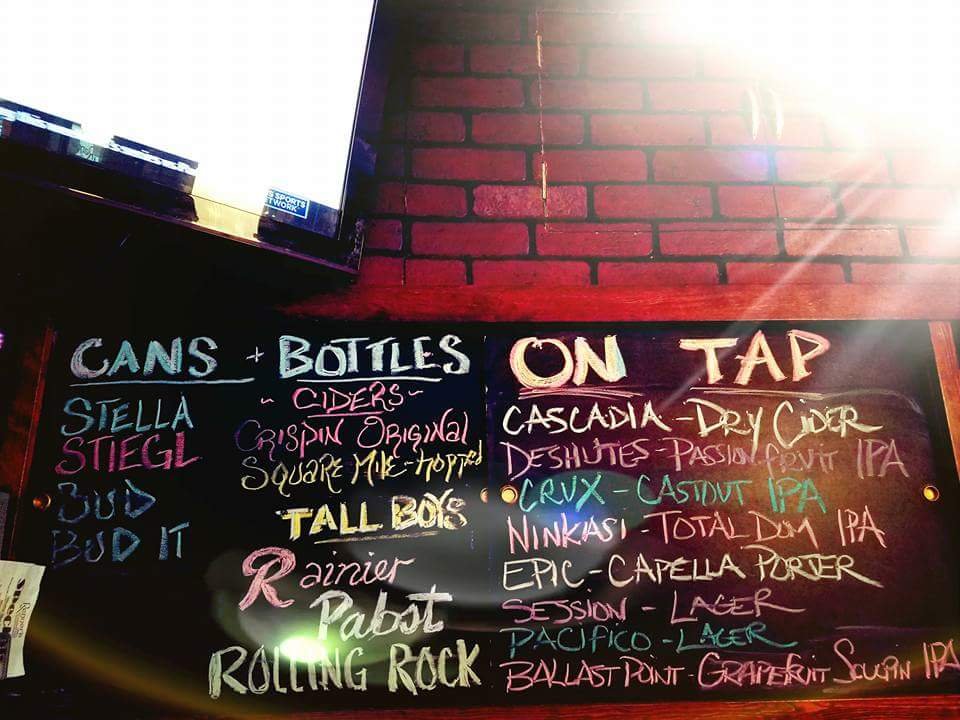 S SPORTS
NETWORK
CANS + BOTTLES
STELLA
STIEGL
BUD
BUD IT
~ CIDERS ~
CRISPIN ORIGINAL
SQUARE MILE - HOPPED
TALL BOYS
Rainier
Pabst
ROLLING ROCK
ON TAP
CASCADIA - DRY CIDER
DESHUTES - PASSION FRUIT IPA
CRUX - CASTOUT IPA
NINKASI - TOTAL DOM IPA
EPIC - CAPELLA PORTER
SESSION - LAGER
PACIFICO - LAGER
BALLAST POINT - GRAPEFRUIT SCULPIN IPA